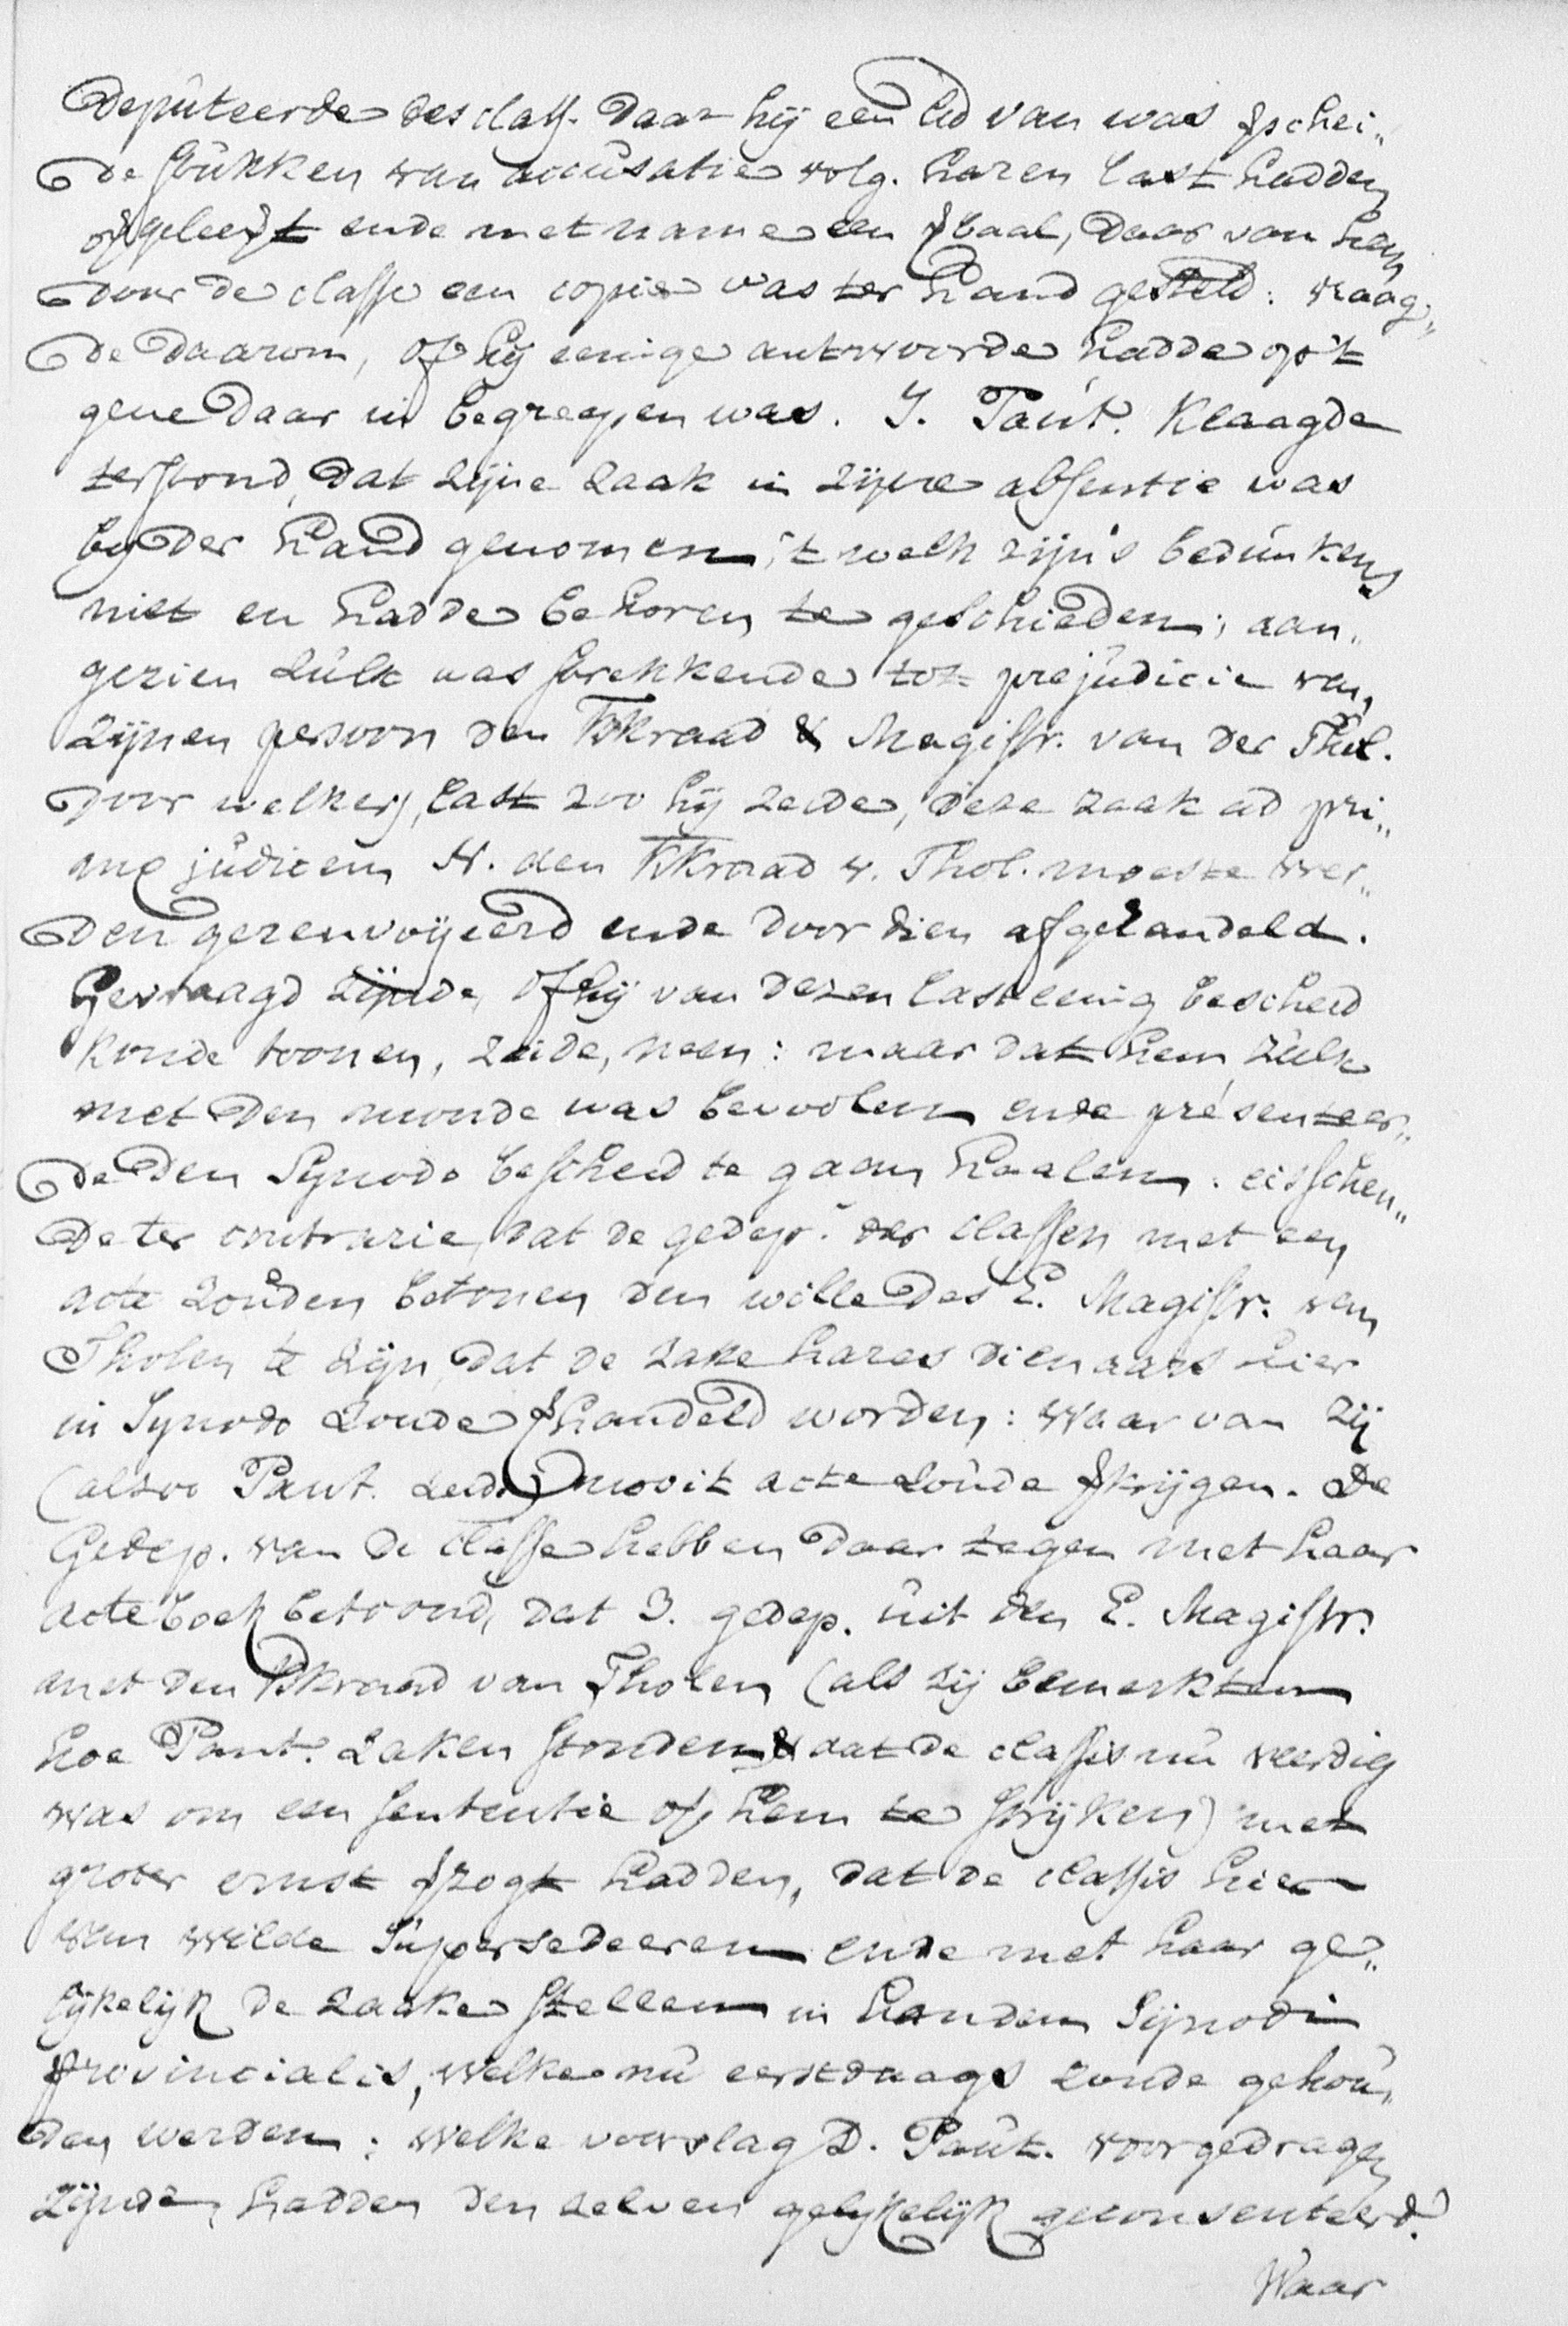 Deputeerde des class. daar hij een lid van was & schei„
de stukken van accusatie volg. haren last hadden
opgeleest ende met name een &baal, daar van hem
door de classe een copie was ter hand gesteld: vraag„
de daarom, of hij eenige antwoorde hadde op 't
gene daar in begreepen was. J. Paut. klaagde
terstond, dat zijne zaak in zijne absentie was
by der hand genomen, 't welk zijn's bedunkens
niet en hadde behoren te geschieden; aan„
gezien zulk was strekkende tot prejudicie van
zijnen persoon den Kkraad & Magistr. van der Thol.
door welkers last zoo hij zeide, deze zaak ad pri„
mū judicem N. den Kkraad v. Thol. moeste wer„
den gerenvoijeerd ende door dien afgehandeld.
Gevraagd zijnde, of hij van dezen last eenig bescheid
konde toonen, zeide, neen: maar dat hem zulk
met den monde was bevolen ende présenteer„
de den Synodo bescheid te gaan haalen. eisschen„
de ter contrarie, dat de gedep. der classen met een
acte zouden betonen den wille des E. Magistr. van
Tholen te zijn, dat de zake hares dienaars hier
in Synodo zoude &handeld worden: waar van zij
(alzoo Paut. zeide) nooit acte zoude &krijgen. De
Gedep. van de classe hebben daar tegen met haar
acte boek betoond, dat 3. gedep. uit den E. Magistr.
met den Kkraad van Tholen (als zij bemerkten
hoe Paut. zaken stonden & dat de classis nu veerdig
was om een sententie op hem te strijken) met
groter ernst &zogt hadden, dat de classis hier
van wilde supersedeeren ende met haar ge„
lijkelijk de zaake stellen in handen Sijnodi
provincialis, welke nu eerstdaags zoude gehou„
den werden: welke voorslag D. Paut. voorgedragen
zijnde, hadden den zelven gelijkelijk geconsenteerd.
Waar